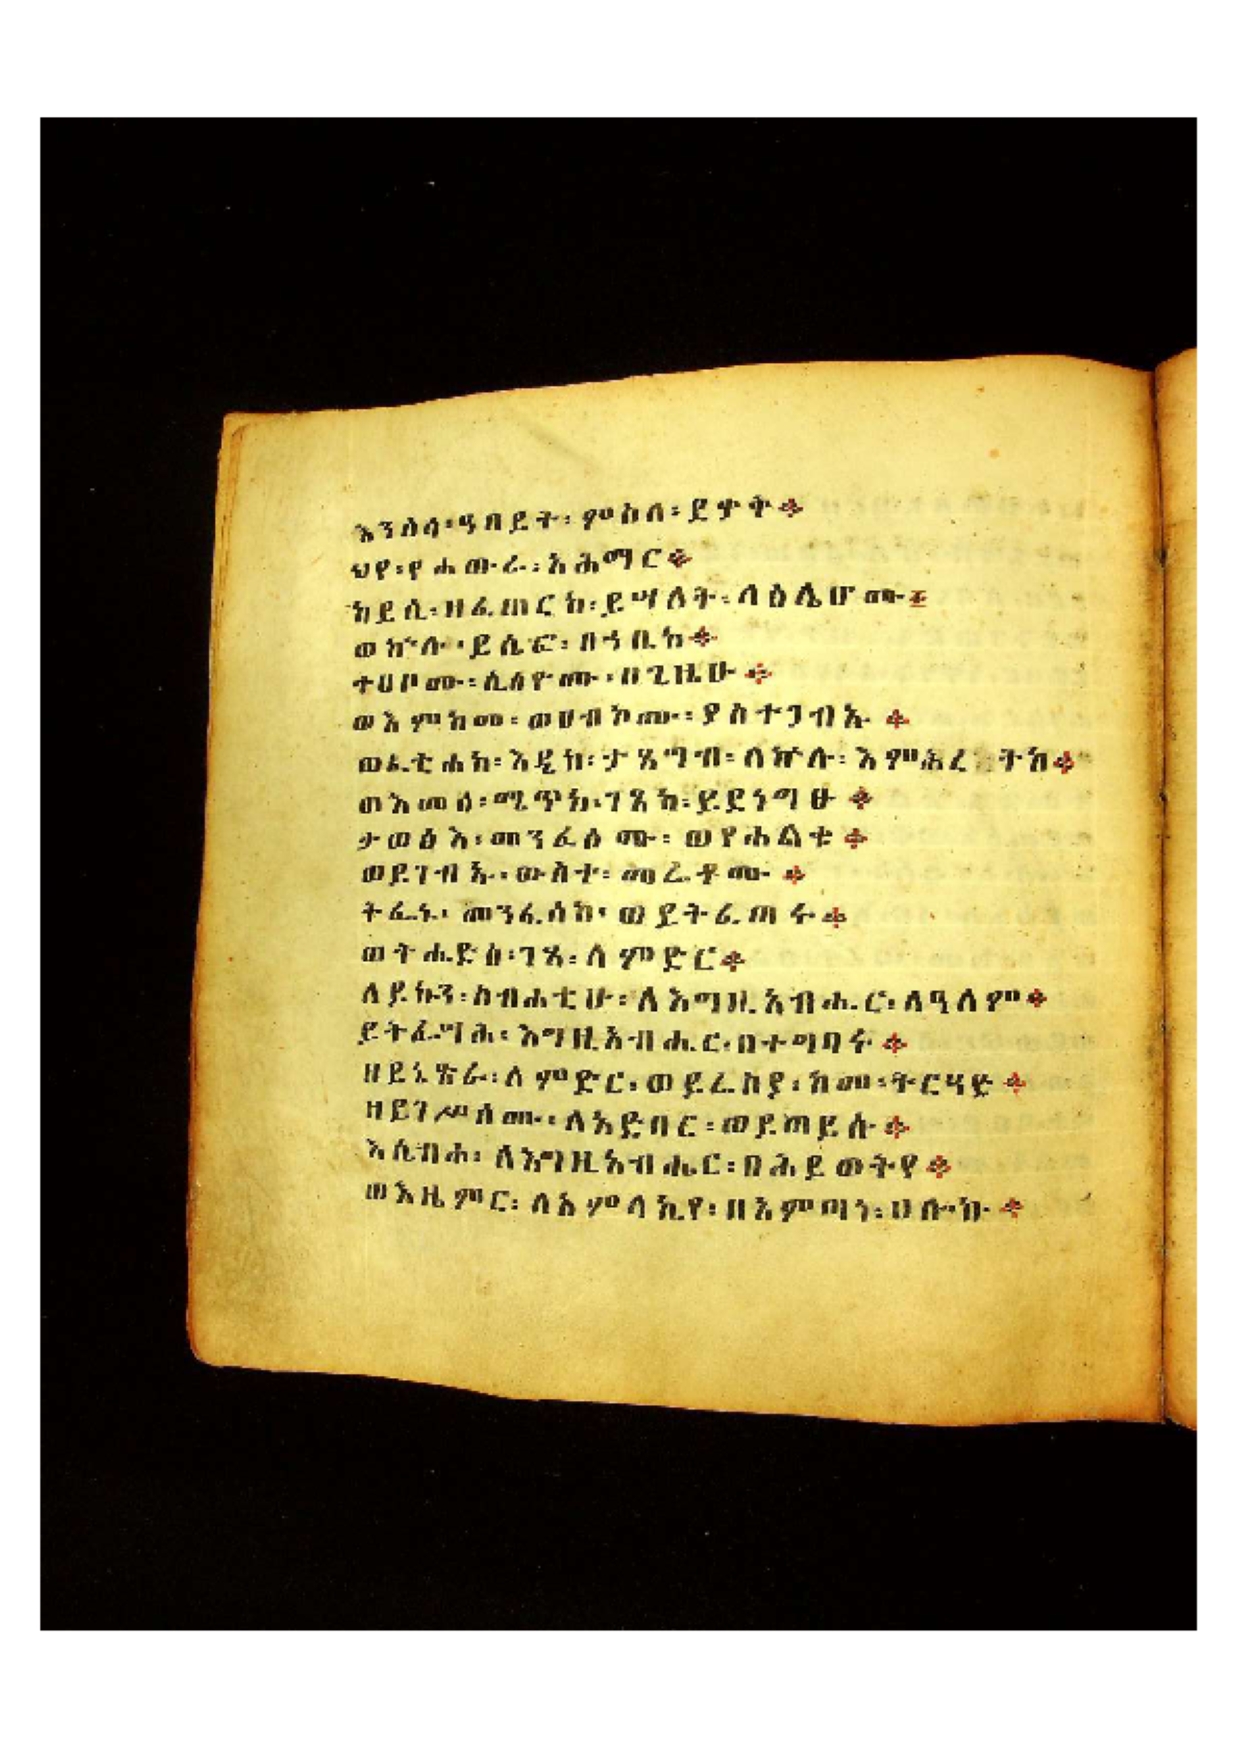 እንስሳ፡ዓበይት፡ምስለ፡ደቃቅ፨
ህየ፡የሐውራ፡አሕማር፨
ከይሲ፡ዘፈጠርከ፡ይሣለት፡ላዕሌሆሙ፨
ወኵሉ፡ይሴፎ፡በኀቤከ፨
ተሀቦሙ፡ሲሳዮሙ፡በጊዜሁ፨
ወእምከመ፡ወሀብኮሙ፡ያስተጋብኡ፨
ወፈቲሐከ፡እዴከ፡ታጸግብ፡ለኵሉ፡እምሕረትከ፨
ወእመሰ፡ሜጥከ፡ገጸከ፡ይደነግፁ፨
ታወፅእ፡መንፈሶሙ፡ወየሐልቁ፨
ወይገብኡ፡ውስተ፡መሬቶሙ፨
ትፌኑ፡መንፈሰከ፡ወይትፈጠሩ፨
ወትሔድስ፡ገጻ፡ለምድር፨
ለይኩን፡ስብሐቲሁ፡ለእግዚአብሔር፡ለዓለም፨
ይትፌሣሕ፡እግዚአብሔር፡በተግባሩ፨
ዘይኔጽራ፡ለምድር፡ወይሬስያ፡ከመ፡ትርዓድ፨
ዘይገሥሦሙ፡ለአድባር፡ወይጠይሱ፨
እሴብሖ፡ለእግዚአብሔር፡በሕይወትየ፨
ወእዜምር፡ለአምላኪየ፡በአምጣነ፡ሀሎኩ፨